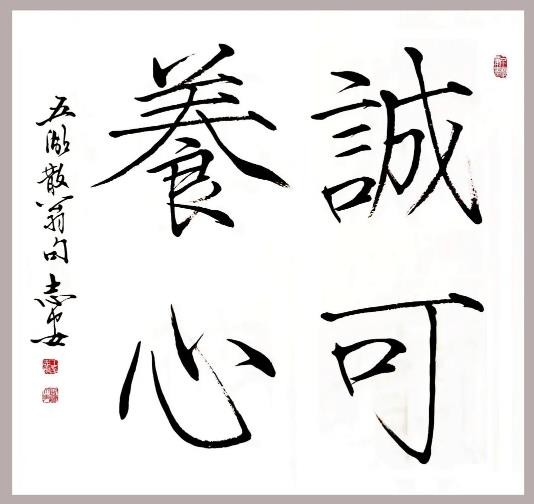 誠可
養心
五湖散翁句志安